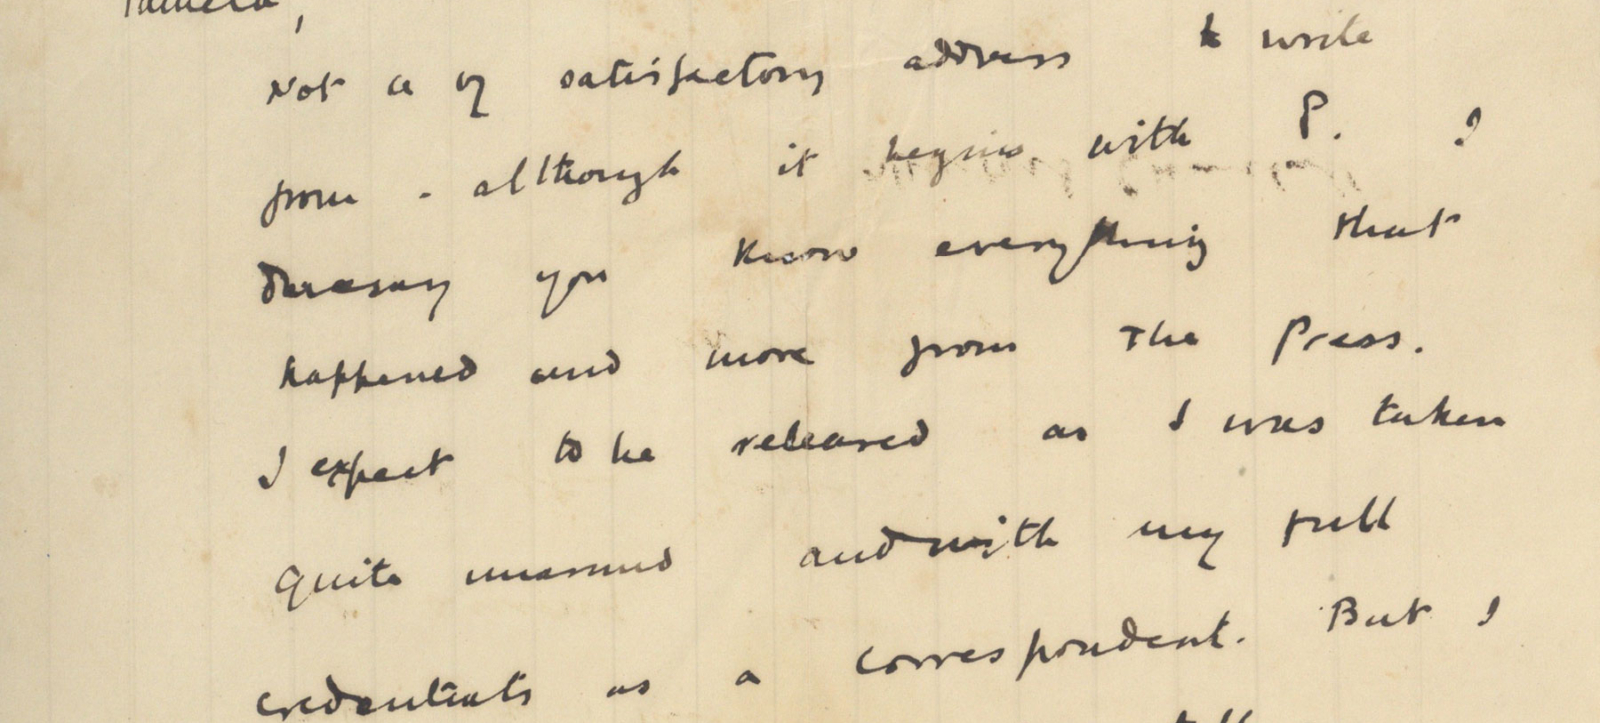 Pamela,
Not a vy satisfactory address to write
from - although it begins with P. I
Daresay you know everything that
happened and more from the Press.
I expect to be released as I was taken
quite unarmed and with my full
credentials as a correspondent. But I